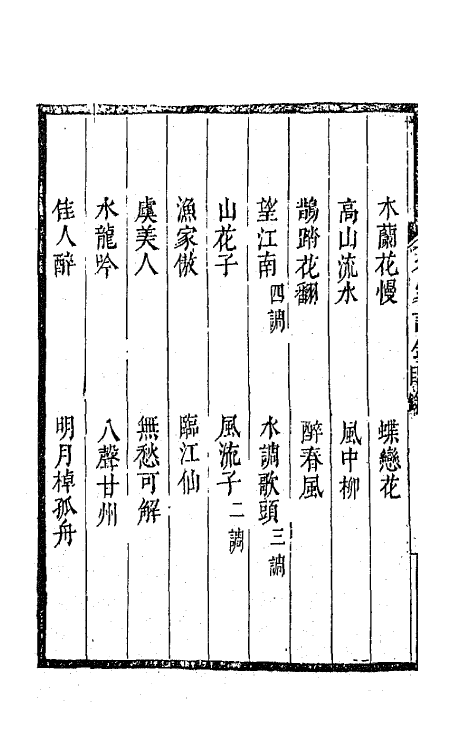 木蘭花慢　蝶戀花
高山流水　風中柳
鵲踏花翻　醉春風
望江南四調　水調歌頭三調
山花子　風流子二調
漁家傲　臨江仙
虞美人　無愁可解
水龍吟　八聲甘州
佳人醉　明月棹孤舟